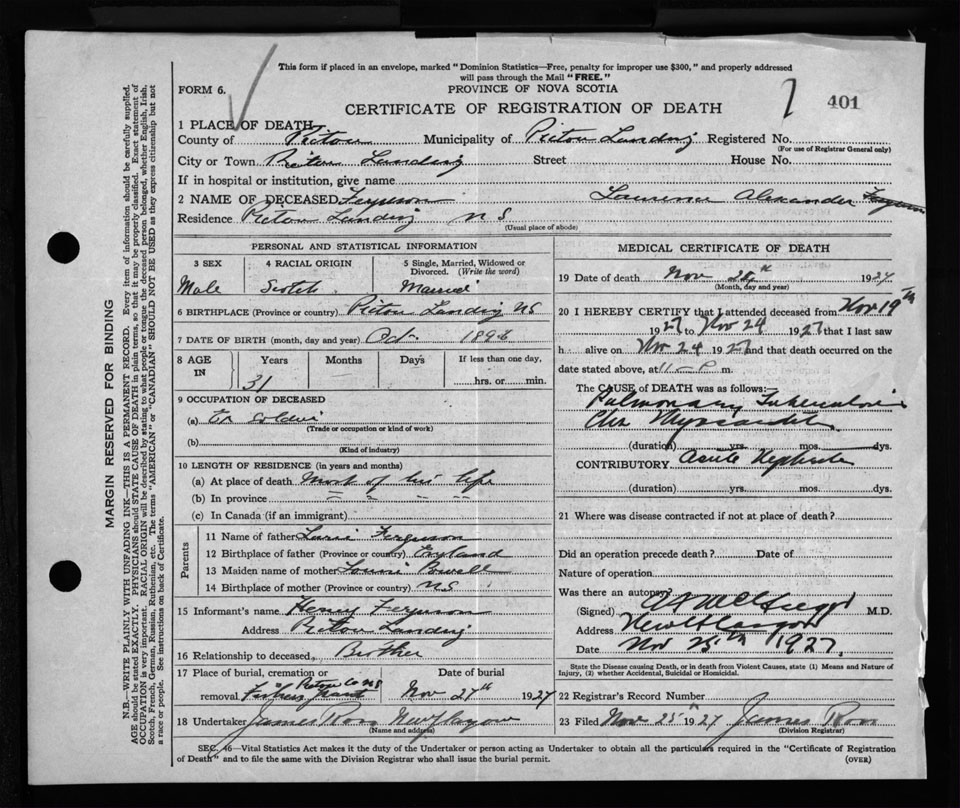 This form if placed in an envelope, marked "Dominion Statistics—Free, penalty for improper use $300," and properly addressed
will pass through the Mail "FREE."
FORM 6.
PROVINCE OF NOVA SCOTIA
CERTIFICATE OF REGISTRATION OF DEATH
401
1 PLACE OF DEATH
County of Pictou Municipality of Pictou Landing Registered No.
(For use of Registrar General only)
City or Town Pictou Landing Street House No.
If in hospital or institution, give name
2 NAME OF DECEASED Ferguson Laurence Alexander Ferguson
Residence Pictou Landing N S
(Usual place of abode)
PERSONAL AND STATISTICAL INFORMATION
3 SEX 4 RACIAL ORIGIN 5 Single, Married, Widowed or
Divorced. (Write the word)
Male Scotch Married
6 BIRTHPLACE (Province or country) Pictou Landing NS
7 DATE OF BIRTH (month, day and year) Oct 1896
8 AGE IN Years Months Days If less than one day,
31 hrs. or min.
9 OCCUPATION OF DECEASED
(a) Ex Soldier
(Trade or occupation or kind of work)
(b)
(Kind of industry)
10 LENGTH OF RESIDENCE (in years and months)
(a) At place of death Most of his life
(b) In province
(c) In Canada (if an immigrant)
Parents
11 Name of father Ferguson
12 Birthplace of father (Province or country) England
13 Maiden name of mother Powell
14 Birthplace of mother (Province or country) N.S
15 Informant's name Henry Ferguson
Address Pictou Landing
16 Relationship to deceased, Brother
17 Place of burial, cremation or removal Pictou Co NS
Date of burial
Nov 27th 1927
18 Undertaker James Ross New Glasgow
(Name and address)
MEDICAL CERTIFICATE OF DEATH
19 Date of death Nov 1927
(Month, day and year)
20 I HEREBY CERTIFY that I attended deceased from Nov 19th
1927 to Nov 24 1927 that I last saw
h alive on Nov 24 1927 and that death occurred on the
date stated above, at 11 P m.
The CAUSE of DEATH was as follows:
Pulmonary Tuberculosis
Chr Myocarditis
(duration) yrs. mos. dys.
CONTRIBUTORY Acute Nephritis
(duration) yrs. mos. dys.
21 Where was disease contracted if not at place of death?
Did an operation precede death? Date of
Nature of operation
Was there an autopsy?
(Signed) M.D.
Address New Glasgow
Date Nov 25th 1927.
State the Disease causing Death, or in death from Violent Causes, state (1) Means and Nature of
Injury, (2) whether Accidental, Suicidal or Homicidal.
22 Registrar's Record Number
23 Filed Nov 25th 1927 James Ross
(Division Registrar)
SEC. 46—Vital Statistics Act makes it the duty of the Undertaker or person acting as Undertaker to obtain all the particulars required in the "Certificate of Registration
of Death" and to file the same with the Division Registrar who shall issue the burial permit.
(OVER)
MARGIN RESERVED FOR BINDING
N.B.—WRITE PLAINLY WITH UNFADING INK—THIS IS A PERMANENT RECORD. Every item of information should be carefully supplied.
AGE should be stated EXACTLY. PHYSICIANS should STATE CAUSE OF DEATH in plain terms, so that it may be properly classified. Exact statement of
OCCUPATION is very important. RACIAL ORIGIN will be described by stating to what people or tongue the deceased person belonged, whether English, Irish,
Scotch, French, German, Russian, Ruthenian, etc. The terms "AMERICAN" or "CANADIAN" SHOULD NOT BE USED as they express citizenship but not
a race or people. See instructions on back of Certificate.